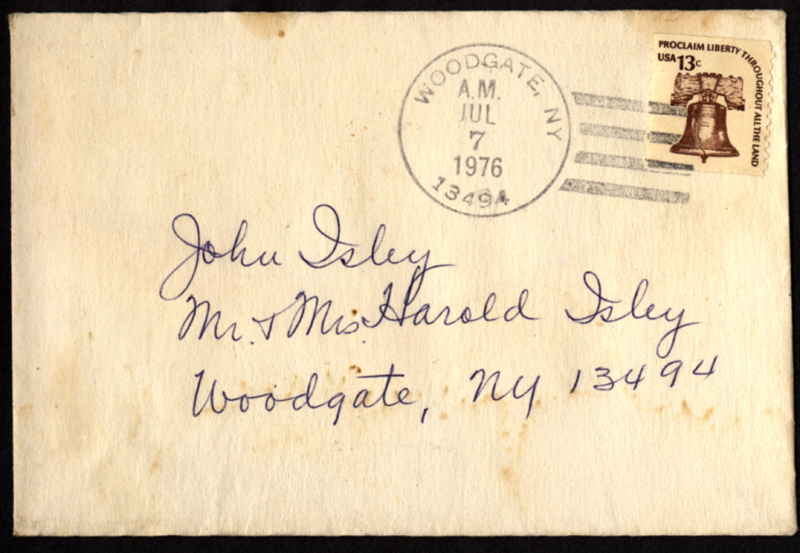 WOODGATE, NY
A.M.
JUL
7
1976
13494
PROCLAIM LIBERTY THROUGHOUT ALL THE LAND
USA 13c
John Isley
Mr. & Mrs. Harold Isley
Woodgate, NY 13494